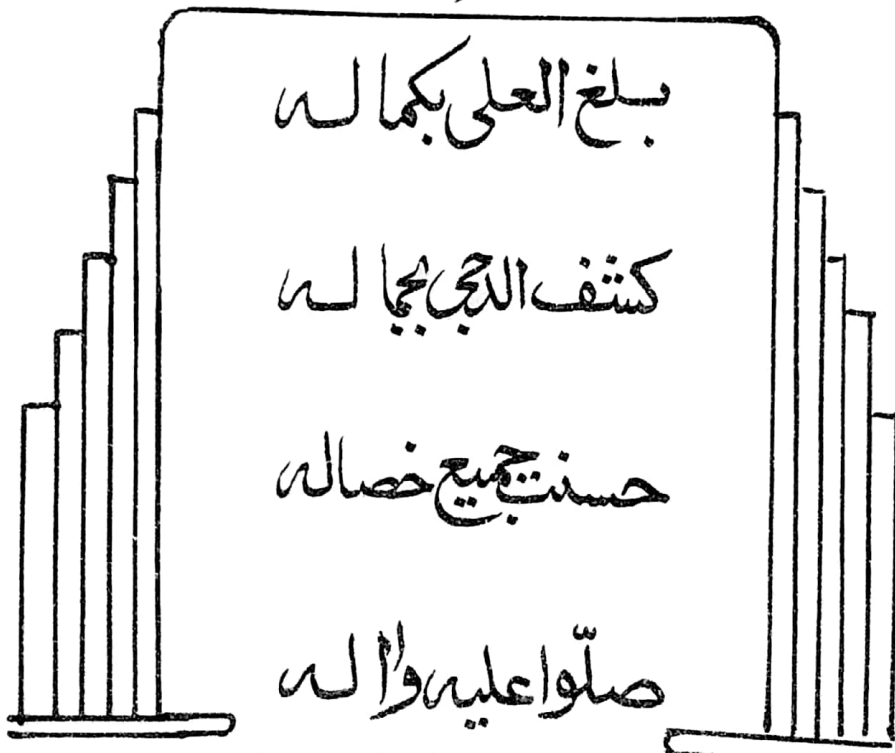 بلغ العلى بكماله
كشف الدجى بجماله
حسنت جميع خصاله
صلّوا عليه واٰله